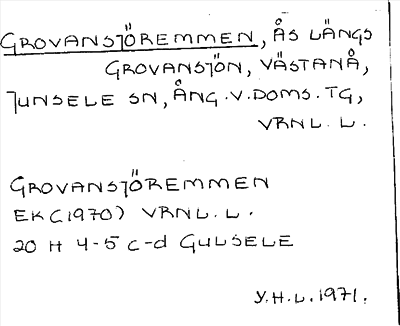 GROVANSJÖREMMEN, ÅS LÄNGS
GROVANSJÖN, VÄSTANÅ,
JUNSELE SN, ÅNG.V.DOMS.TG,
VRNL.L.
GROVANSJÖREMMEN
EK(1970) VRNL.L.
20 H 4-5 c-d GULSELE
Y.H.L.1971.